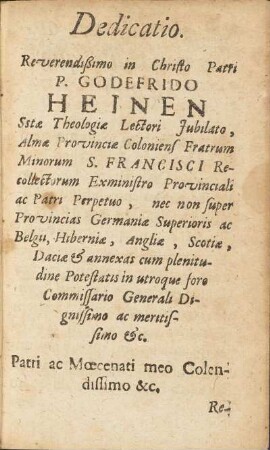 Dedicatio.
Reverendißimo in Christo Patri
P. GODEFRIDO
HEINEN
Sstæ Theologiæ Lectori Jubilato,
Almæ Provinciæ Coloniens Fratrum
Minorum S. FRANCISCI Re-
collectorum Exministro Provinciali
ac Patri Perpetuo, nec non super
Provincias Germaniæ Superioris ac
Belgii, Hiberniæ, Angliæ, Scotiæ,
Daciæ & annexas cum plenitu-
dine Potestatis in utroque foro
Commissario Generali Di-
gnissimo ac meritis-
simo &c.
Patri ac Mœcenati meo Colen-
dissimo &c.
Re-